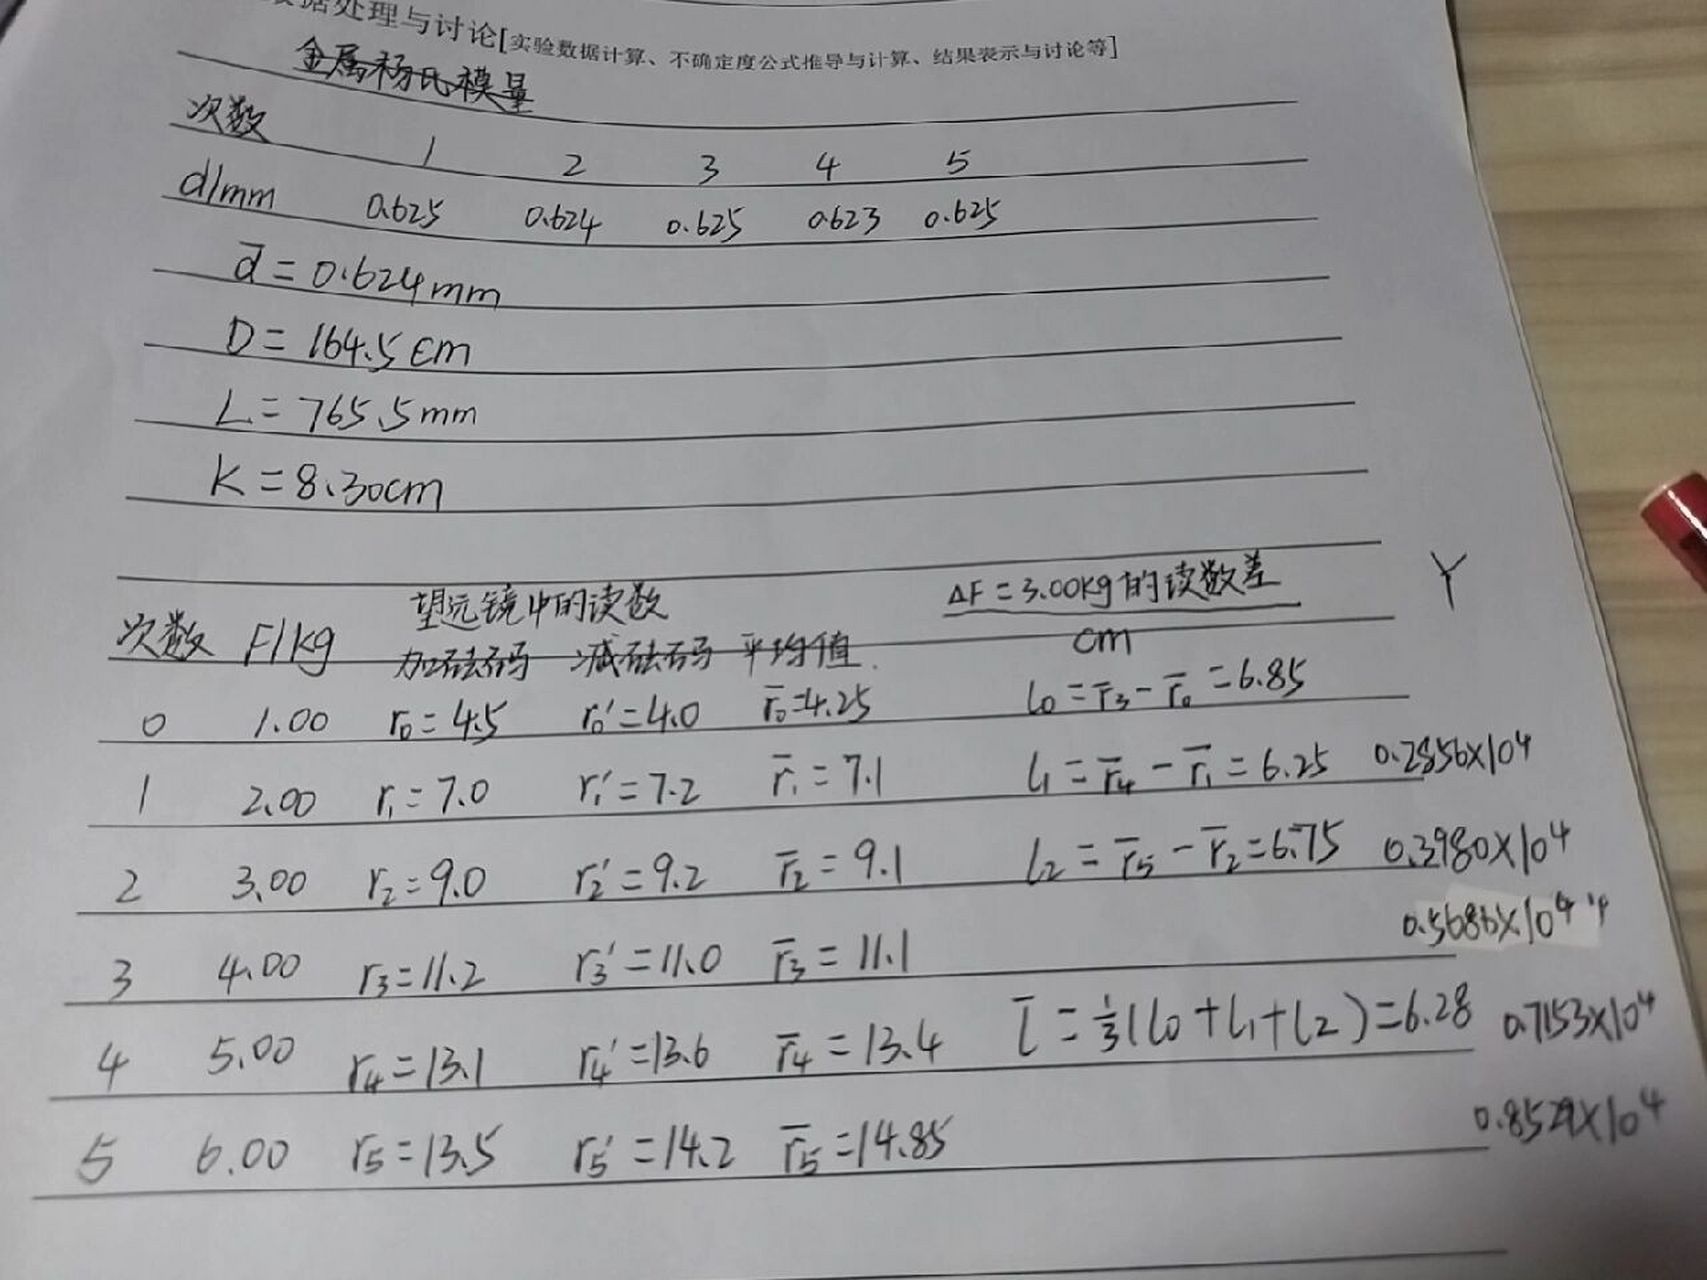 据处理与讨论[实验数据计算、不确定度公式推导与计算、结果表示与讨论等]
金属杨氏模量
次数 1 2 3 4 5
d/mm 0.625 0.624 0.625 0.623 0.625
d̅ = 0.624mm
D = 164.5cm
L = 765.5mm
K = 8.30cm
次数 F/kg 望远镜中的读数 ΔF = 3.00kg的读数差 Y
加砝码 减砝码 平均值 cm
0 1.00 r₀=4.5 r₀'=4.0 r̅₀=4.25 l₀ = r̅₃ - r̅₀ = 6.85
1 2.00 r₁=7.0 r₁'=7.2 r̅₁=7.1 l₁ = r̅₄ - r̅₁ = 6.25 0.2856×10⁴
2 3.00 r₂=9.0 r₂'=9.2 r̅₂=9.1 l₂ = r̅₅ - r̅₂ = 6.75 0.3980×10⁴
3 4.00 r₃=11.2 r₃'=11.0 r̅₃=11.1 0.5686×10⁴
4 5.00 r₄=13.1 r₄'=13.6 r̅₄=13.4 l̅ = ⅓(l₀+l₁+l₂)=6.28 0.7153×10⁴
5 6.00 r₅=13.5 r₅'=14.2 r̅₅=14.85